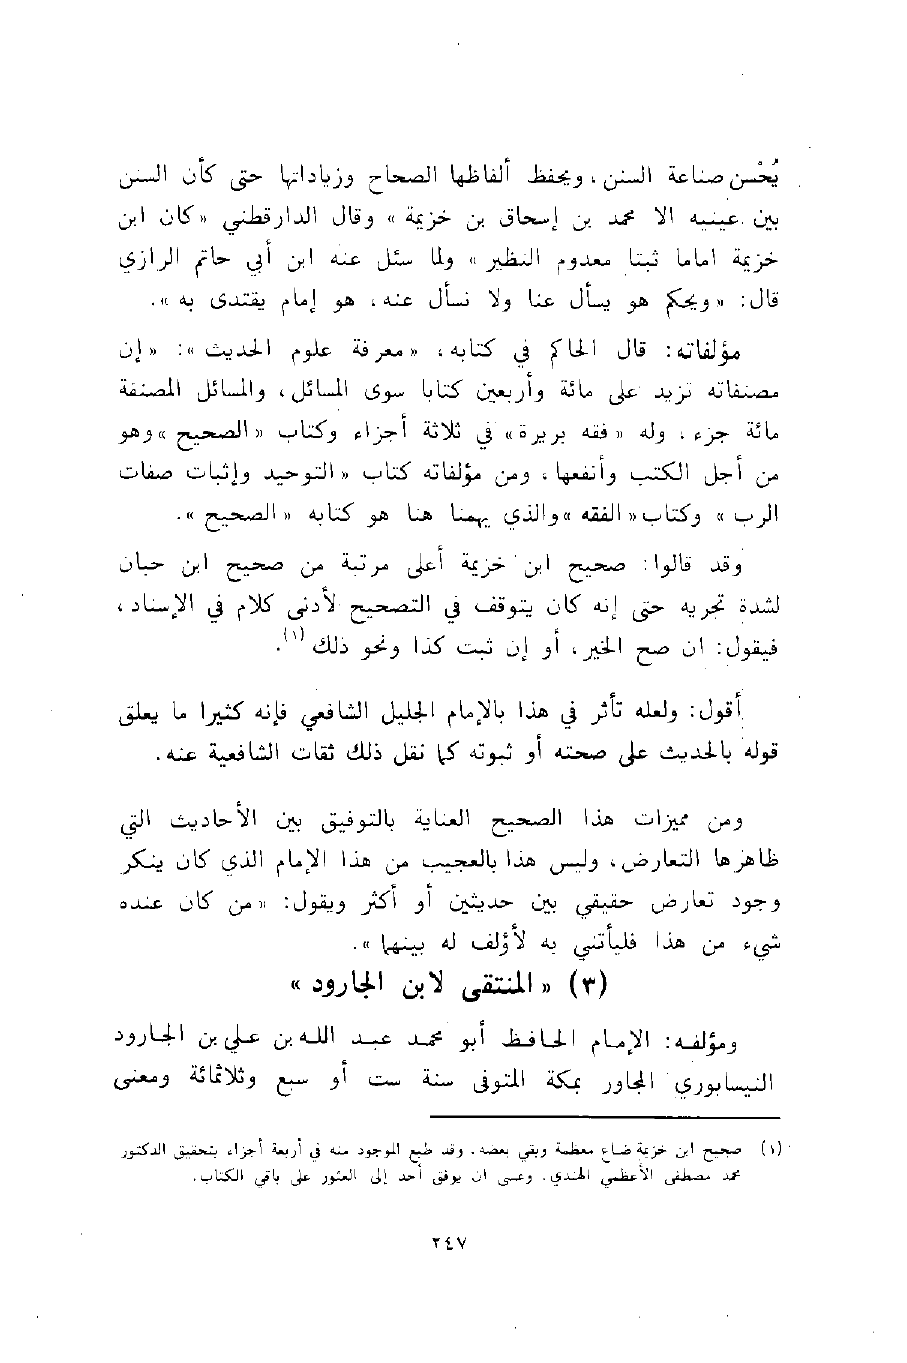 يُحْسن صناعة السنن، ويحفظ ألفاظها الصحاح وزياداتها حتى كأن السنن
بين عينيه الا محمد بن إسحاق بن خزيمة » وقال الدارقطني «كان ابن
خزيمة اماما ثبتا معدوم النظير » ولما سئل عنه ابن أبي حاتم الرازي
قال: « ويحكم هو يسأل عنا ولا نسأل عنه، هو إمام يقتدى به ».
مؤلفاته: قال الحاكم في كتابه، « معرفة علوم الحديث »: « إن
مصنفاته تزيد على مائة وأربعين كتابا سوى المسائل، والمسائل المصنفة
مائة جزء، وله « فقه بريرة» في ثلاثة أجزاء وكتاب «الصحيح »وهو
من أجل الكتب وأنفعها، ومن مؤلفاته كتاب « التوحيد وإثبات صفات
الرب » وكتاب« الفقه »والذي يهمنا هنا هو كتابه «الصحيح ».
وقد قالوا: صحيح ابن خزيمة أعلى مرتبة من صحيح ابن حبان
لشدة تحريه حتى إنه كان يتوقف في التصحيح لأدنى كلام في الاسناد،
فيقول: ان صح الخبر، أو إن ثبت كذا ونحو ذلك (١).
أقول: ولعله تأثر في هذا بالإمام الجليل الشافعي فإنه كثيرا ما يعلق
قوله بالحديث على صحته أو ثبوته كما نقل ذلك ثقات الشافعية عنه.
ومن مميزات هذا الصحيح العناية بالتوفيق بين الأحاديث التي
ظاهرها التعارض، وليس هذا بالعجيب من هذا الإمام الذي كان ينكر
وجود تعارض حقيقي بين حديثين أو أكثر ويقول: «من كان عنده
شيء من هذا فليأتني به لأؤلف له بينهما ».
(٣) « المنتقى لابن الجارود »
ومؤلفه: الإمام الحافظ أبو محمد عبد الله بن علي بن الجارود
النيسابوري المجاور بمكة المتوفى سنة ست أو سبع وثلاثمائة ومعنى
(١) صحيح ابن خزيمة ضاع معظمة وبقي بعضه. وقد طبع الموجود منه في أربعة أجزاء بتحقيق الدكتور
محمد مصطفى الأعظمي الهندي. وعسى ان يوفق أحد إلى العثور على باقي الكتاب.
٢٤٧